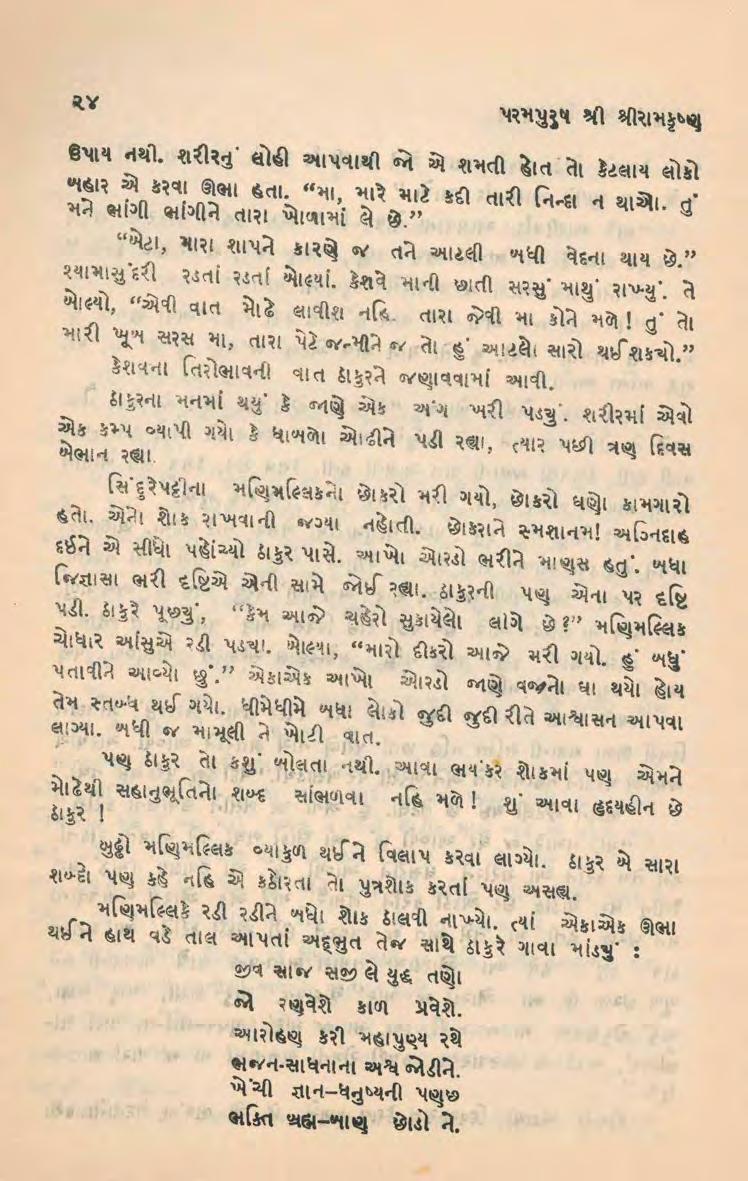 ૨૪
પરમપુરુષ શ્રી શ્રીરામકૃષ્ણ
ઉપાય નથી. શરીરનું લોહી આપવાથી જો એ શમતી હોત તો કેટલાય લોકો
બહાર એ કરવા ઊભા હતા. “મા, મારે માટે કદી તારી નિન્દા ન થાઓ. તું
મને ભાંગી ભાંગીને તારા ખોળામાં લે છે.”
“બેટા, મારા શાપને કારણે જ તને આટલી બધી વેદના થાય છે.”
શ્યામાસુંદરી રડતાં રડતાં બોલ્યાં. કેશવે માની છાતી સરસું માથું રાખ્યું. તે
બોલ્યો, “એવી વાત મોઢે લાવીશ નહિ. તારા જેવી મા કોને મળે! તું તો
મારી ખૂબ સરસ મા, તારા પેટે જન્મીને જ તો હું આટલો સારો થઈ શક્યો.”
કેશવના તિરોભાવની વાત ઠાકુરને જણાવવામાં આવી.
ઠાકુરના મનમાં થયું કે જાણે એક અંગ ખરી પડ્યું. શરીરમાં એવો
એક કમ્પ વ્યાપી ગયો કે ધાબળો ઓઢીને પડી રહ્યા, ત્યાર પછી ત્રણ દિવસ
બેભાન રહ્યા.
સિંદુરેપટ્ટીના મણિમલ્લિકનો છોકરો મરી ગયો, છોકરો ઘણો કામગારો
હતો. એનો શોક રાખવાની જગ્યા નહોતી. છોકરાને સ્મશાનમાં અગ્નિદાહ
દઈને એ સીધો પહોંચ્યો ઠાકુર પાસે. આખો ઓરડો ભરીને માણસ હતું. બધા
જિજ્ઞાસા ભરી દૃષ્ટિએ એની સામે જોઈ રહ્યા. ઠાકુરની પણ એના પર દૃષ્ટિ
પડી. ઠાકુરે પૂછ્યું, “કેમ આજે ચહેરો સુકાયેલો લાગે છે?” મણિમલ્લિક
ચોધાર આંસુએ રડી પડ્યા. બોલ્યા, “મારો દીકરો આજે મરી ગયો. હું બધું
પતાવીને આવ્યો છું.” એકાએક આખો ઓરડો જાણે વજ્રનો ઘા થયો હોય
તેમ સ્તબ્ધ થઈ ગયો. ધીમેધીમે બધા લોકો જુદી જુદી રીતે આશ્વાસન આપવા
લાગ્યા. બધી જ મામૂલી ને ખોટી વાત.
પણ ઠાકુર તો કશું બોલતા નથી. આવા ભયંકર શોકમાં પણ એમને
મોઢેથી સહાનુભૂતિનો શબ્દ સાંભળવા નહિ મળે! શું આવા હૃદયહીન છે
ઠાકુર !
બુઢ્ઢો મણિમલ્લિક વ્યાકુળ થઈને વિલાપ કરવા લાગ્યો. ઠાકુર બે સારા
શબ્દો પણ કહે નહિ એ કઠોરતા તો પુત્રશોક કરતાં પણ અસહ્ય.
મણિમલ્લિકે રડી રડીને બધો શોક ઠાલવી નાખ્યો. ત્યાં એકાએક ઊભા
થઈને હાથ વડે તાલ આપતાં અદ્ભુત તેજ સાથે ઠાકુરે ગાવા માંડ્યું :
જીવ સાજ સજી લે યુદ્ધ તણો
જો રણવેશે કાળ પ્રવેશે.
આરોહણ કરી મહાપુણ્ય રથે
ભજન-સાધનાના અશ્વ જોડીને.
ખેંચી જ્ઞાન–ધનુષ્યની પણછ
ભક્તિ બ્રહ્મ–બાણ છોડો ને.